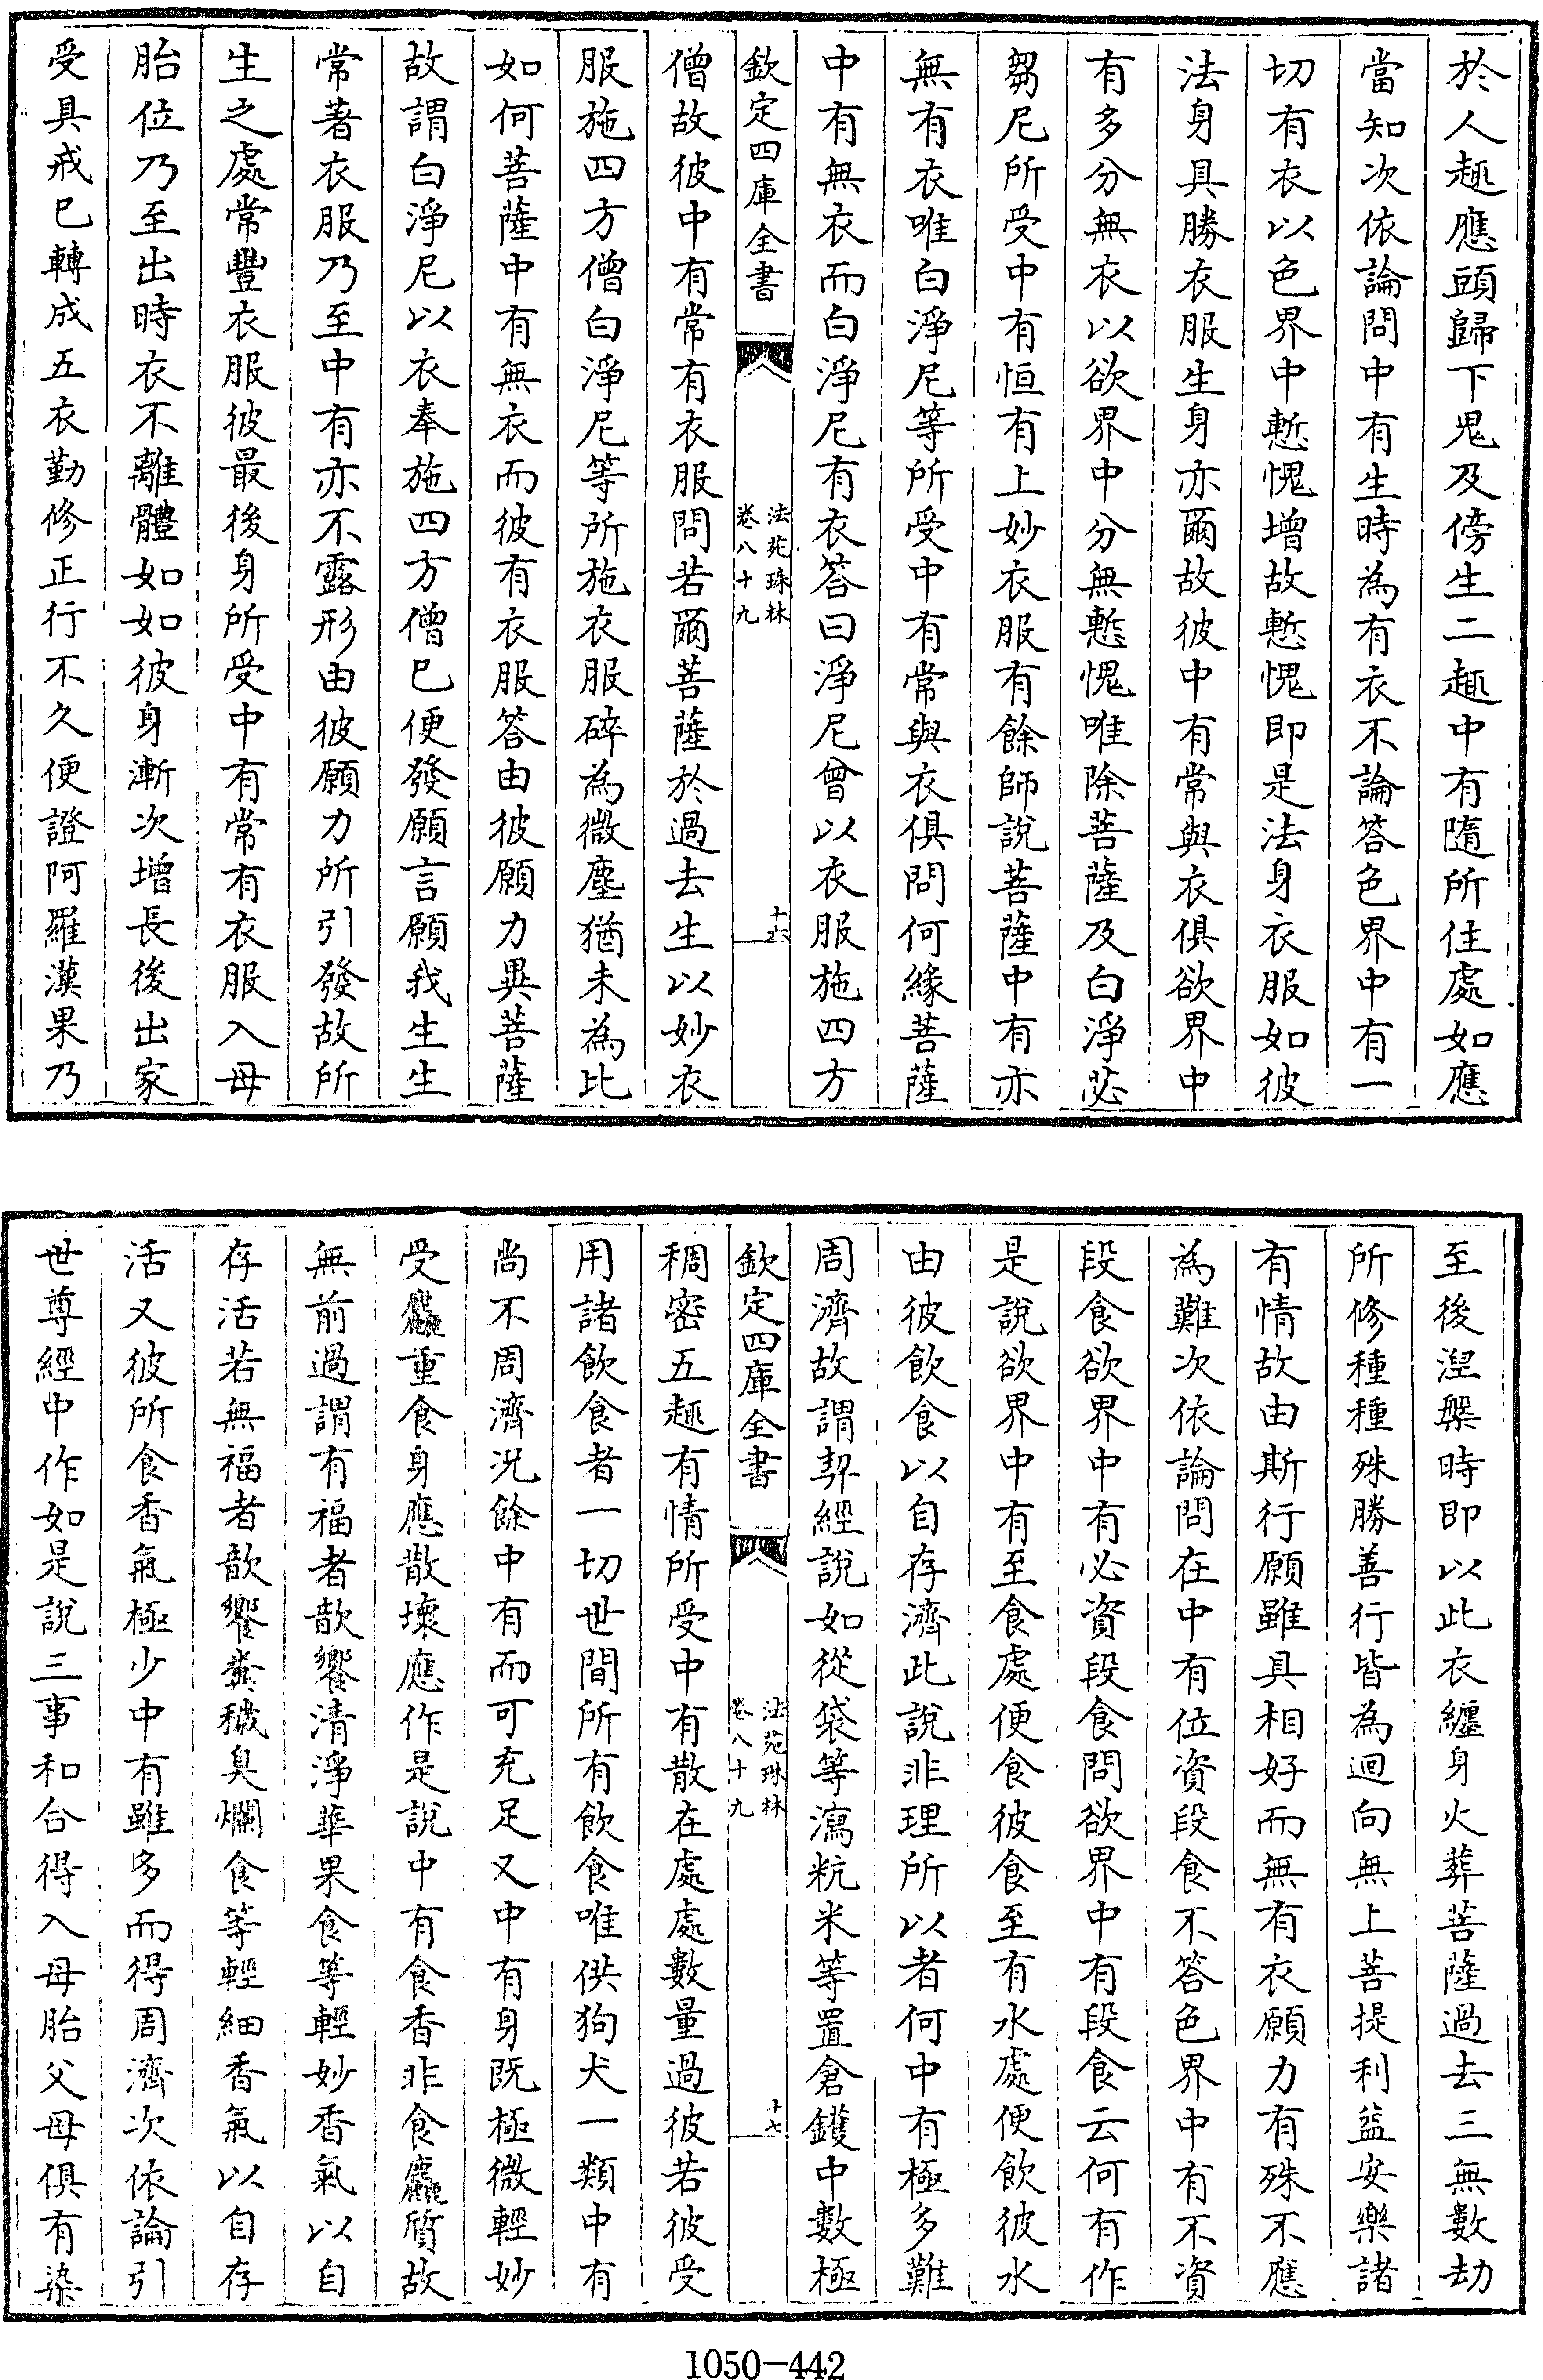 於人趣應頭歸下鬼及傍生二趣中有隨所住處如應
當知次依論問中有生時為有衣不論答色界中有一
切有衣以色界中慙愧增故慙愧即是法身衣服如彼
法身具勝衣服生身亦爾故彼中有常與衣俱欲界中
有多分無衣以欲界中分無慙愧唯除菩薩及白淨苾
芻尼所受中有恒有上妙衣服有餘師說菩薩中有亦
無有衣唯白淨尼等所受中有常與衣俱問何緣菩薩
中有無衣而白淨尼有衣答曰淨尼曾以衣服施四方
欽定四庫全書
法苑珠林
卷八十九
十六
僧故彼中有常有衣服問若爾菩薩於過去生以妙衣
服施四方僧白淨尼等所施衣服碎為微塵猶未為比
如何菩薩中有無衣而彼有衣服答由彼願力異菩薩
故謂白淨尼以衣奉施四方僧已便發願言願我生生
常著衣服乃至中有亦不露形由彼願力所引發故所
生之處常豐衣服彼最後身所受中有常有衣服入母
胎位乃至出時衣不離體如如彼身漸次增長後出家
受具戒已轉成五衣勤修正行不久便證阿羅漢果乃
至後涅槃時即以此衣纏身火葬菩薩過去三無數劫
所修種種殊勝善行皆為迴向無上菩提利益安樂諸
有情故由斯行願雖具相好而無有衣願力有殊不應
為難次依論問在中有位資段食不答色界中有不資
段食欲界中有必資段食問欲界中有段食云何有作
是說欲界中有至食處便食彼食至有水處便飲彼水
由彼飲食以自存濟此說非理所以者何中有極多難
周濟故謂契經說如從袋等瀉粇米等置倉鑊中數極
欽定四庫全書
法苑珠林
卷八十九
十七
稠密五趣有情所受中有散在處處數量過彼若彼受
用諸飲食者一切世間所有飲食唯供狗犬一類中有
尚不周濟況餘中有而可充足又中有身既極微輕妙
受麤重食身應散壞應作是說中有食香非食麤質故
無前過謂有福者歆饗清淨華果食等輕妙香氣以自
存活若無福者歆饗糞穢臭爛食等輕細香氣以自存
活又彼所食香氣極少中有雖多而得周濟次依論引
世尊經中作如是說三事和合得入母胎父母俱有染
1050-442